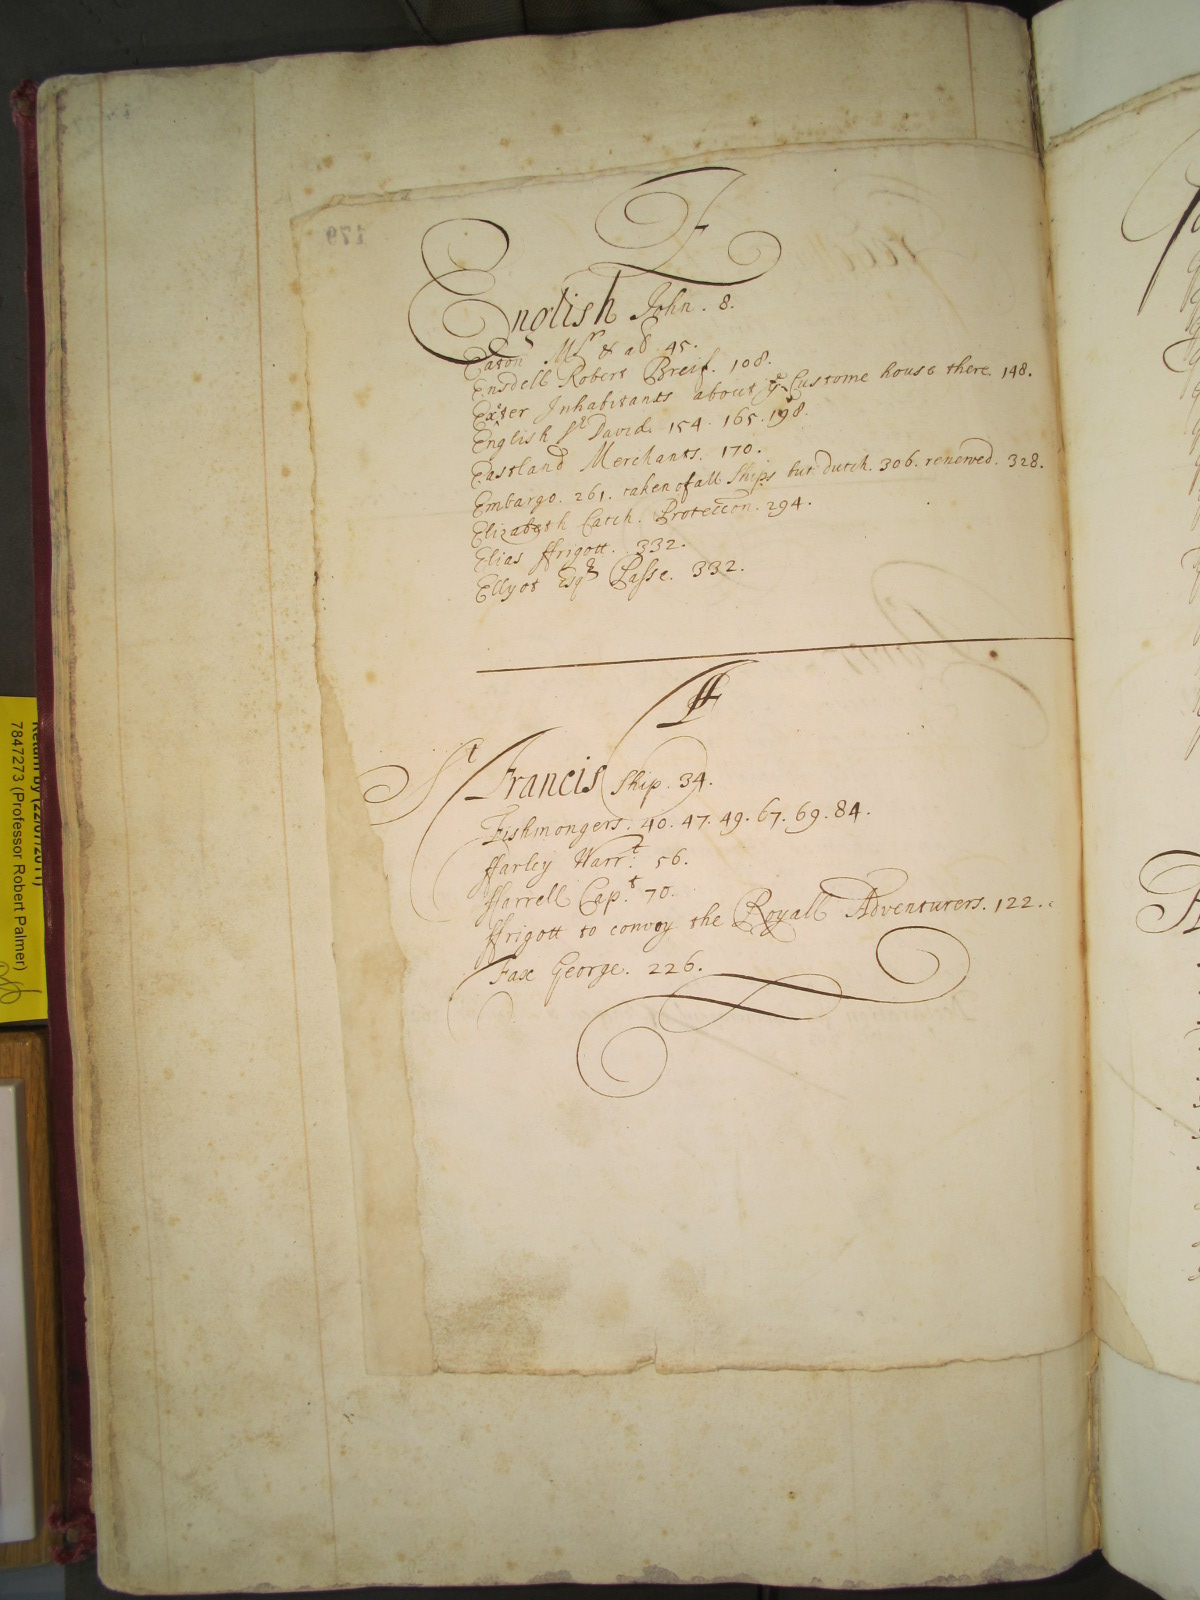 E
English John. 8.
Eaton Mr & al 45.
Ensdell Robert Breif. 108.
Exeter Inhabitants about ye Custome house there. 148.
English Sr David. 154. 165. 198.
Eastland Merchants. 170.
Embargo. 261. taken of all Ships but dutch. 306. renewed. 328.
Elizabeth Catch. Proteccon. 294.
Elias ffrigott. 332.
Ellyot Esqr Passe. 332.
ff
St Francis Ship. 34.
Fishmongers. 40. 47. 49. 67. 69. 84.
ffarley Warrt: 56.
ffarrell Capt. 70.
ffrigott to convoy the Royall Adventurers. 122.
Fax George. 226.
179
Return by (22/07/2011)
7847273 (Professor Robert Palmer)